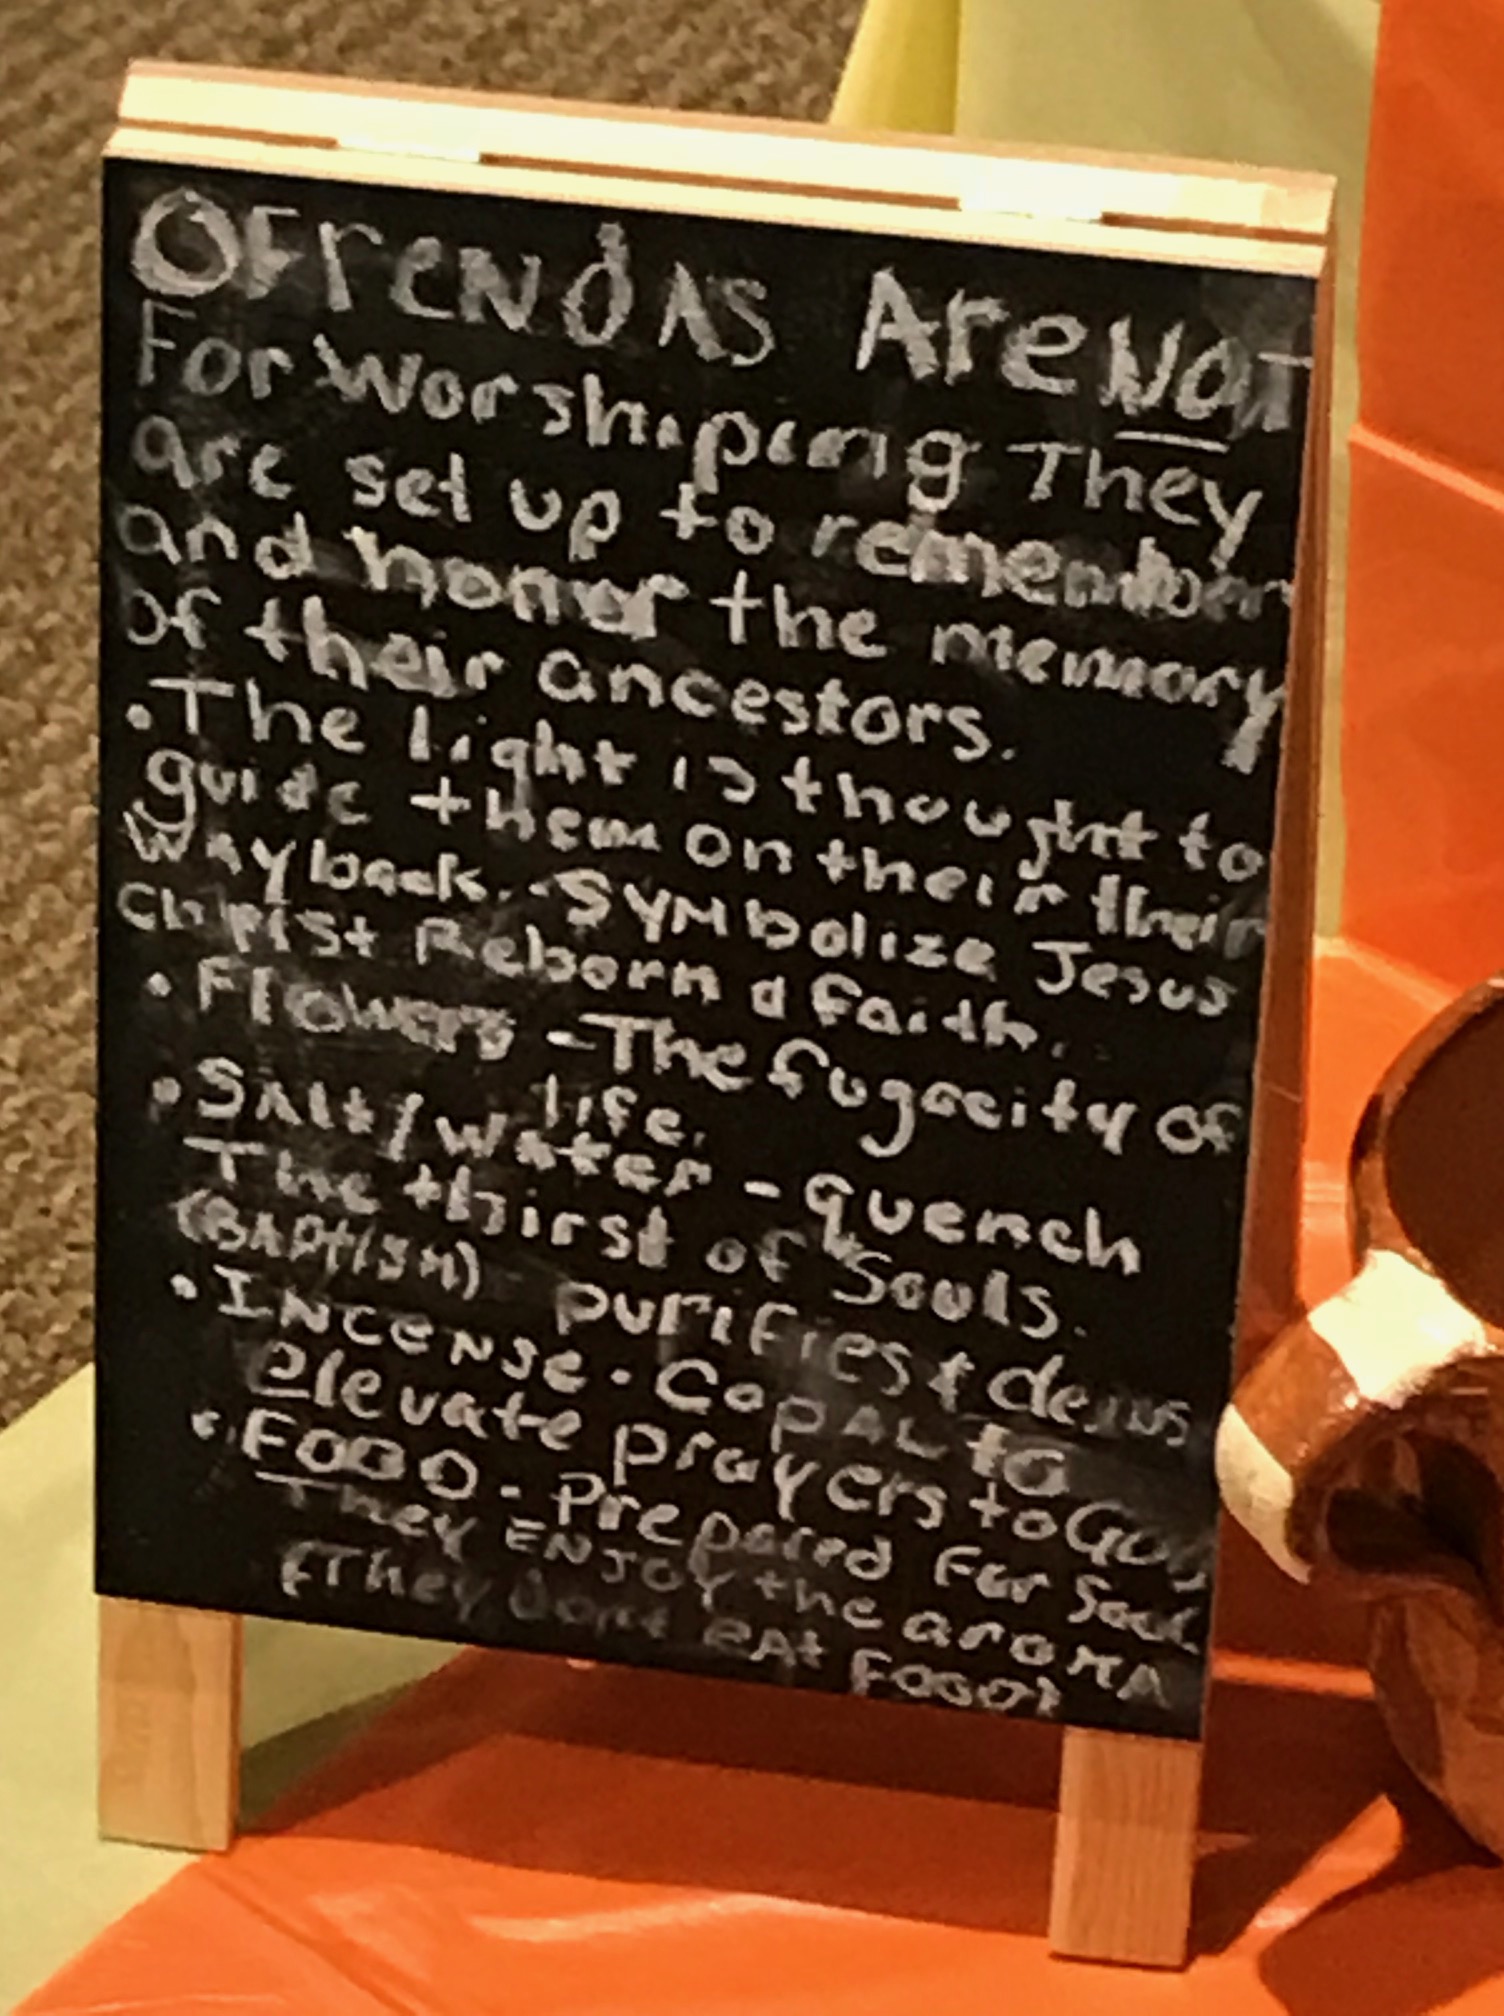 OFrENdAS Are NOT
For Worshiping They
are set up to remember
and honor the memory
of their ancestors.
• The light is thought to
guide them on their their
way back. - Symbolize Jesus
Christ Reborn & faith.
• Flowers - The fugacity of
life.
• SAlt/water - quench
The thirst of Souls.
(BAptISM) purifies &
• INCENSE • CopAL to
elevate prayers to God
• FOOD - Prepared For Soul
They ENJOY the aroMA
(They Dont eAt Food)